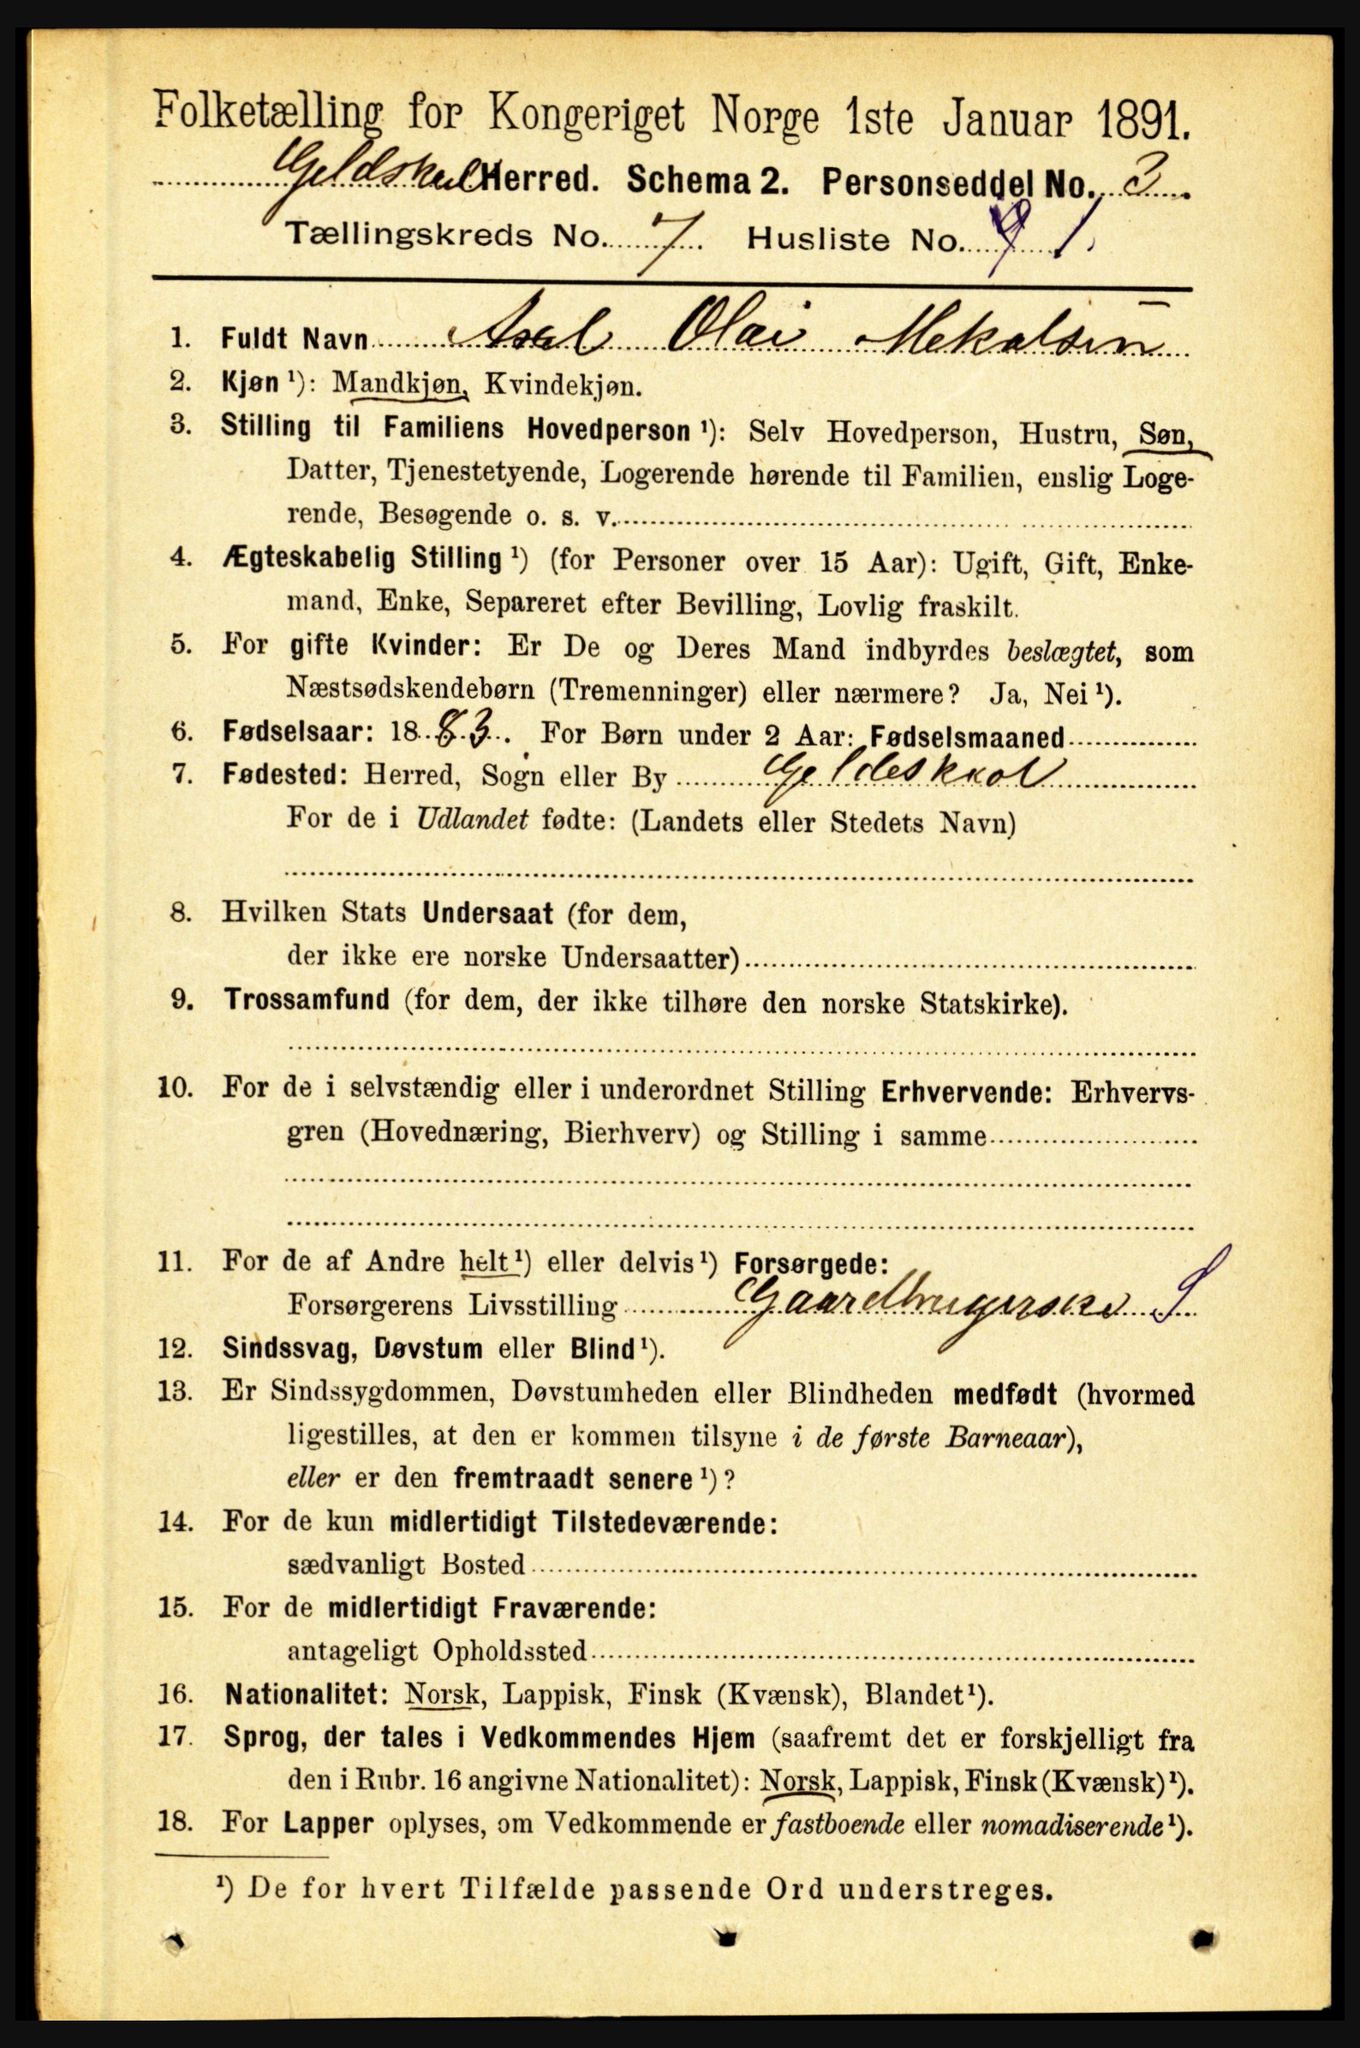 Folketælling for Kongeriget Norge 1ste Januar 1891.
Geldskal Herred. Schema 2. Personseddel No. 3.
Tællingskreds No. 7 Husliste No. 1.
1. Fuldt Navn Axel Olai Mekalsen
2. Kjøn ¹): Mandkjøn, Kvindekjøn.
3. Stilling til Familiens Hovedperson ¹): Selv Hovedperson, Hustru, Søn,
Datter, Tjenestetyende, Logerende hørende til Familien, enslig Loge-
rende, Besøgende o. s. v.
4. Ægteskabelig Stilling ¹) (for Personer over 15 Aar): Ugift, Gift, Enke-
mand, Enke, Separeret efter Bevilling, Lovlig fraskilt.
5. For gifte Kvinder: Er De og Deres Mand indbyrdes beslægtet, som
Næstsødskendebørn (Tremenninger) eller nærmere? Ja, Nei ¹).
6. Fødselsaar: 1883. For Børn under 2 Aar: Fødselsmaaned
7. Fødested: Herred, Sogn eller By Geldeskaal
For de i Udlandet fødte: (Landets eller Stedets Navn)
8. Hvilken Stats Undersaat (for dem,
der ikke ere norske Undersaatter)
9. Trossamfund (for dem, der ikke tilhøre den norske Statskirke).
10. For de i selvstændig eller i underordnet Stilling Erhvervende: Erhvervs-
gren (Hovednæring, Bierhverv) og Stilling i samme
11. For de af Andre helt ¹) eller delvis ¹) Forsørgede:
Forsørgerens Livsstilling Gaardbrugerske S
12. Sindssvag, Døvstum eller Blind ¹).
13. Er Sindssygdommen, Døvstumheden eller Blindheden medfødt (hvormed
ligestilles, at den er kommen tilsyne i de første Barneaar),
eller er den fremtraadt senere ¹)?
14. For de kun midlertidigt Tilstedeværende:
sædvanligt Bosted
15. For de midlertidigt Fraværende:
antageligt Opholdssted
16. Nationalitet: Norsk, Lappisk, Finsk (Kvænsk), Blandet ¹).
17. Sprog, der tales i Vedkommendes Hjem (saafremt det er forskjelligt fra
den i Rubr. 16 angivne Nationalitet): Norsk, Lappisk, Finsk (Kvænsk) ¹).
18. For Lapper oplyses, om Vedkommende er fastboende eller nomadiserende ¹).
¹) De for hvert Tilfælde passende Ord understreges.